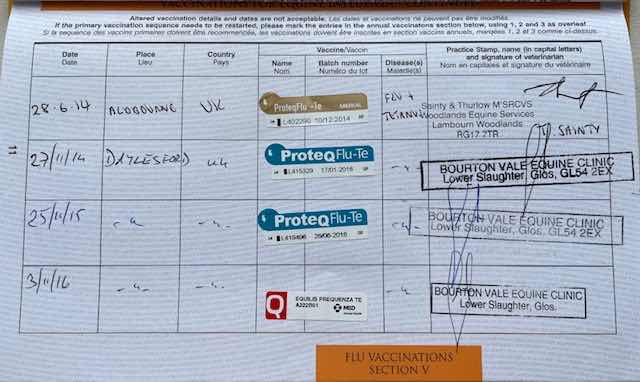 Altered vaccination details and dates are not acceptable. Les dates et vaccinations ne peuvent pas être modifiés.
If the primary vaccination sequence needs to be restarted, please mark the entries in the annual vaccinations section below, using 1, 2 and 3 as overleaf.
Si la séquence des vaccins primaires doivent être recommencés, les vaccinations doivent être inscrites en section vaccins annuels, marquées 1, 2 et 3 comme ci-dessus.
Date Place Country Vaccine/Vaccin Disease(s) Practice Stamp, name (in capital letters)
Date Lieu Pays Name Batch number Maladie(s) and signature of veterinarian
Nom Numéro du lot Nom en capitales et signature du vétérinaire
28.6.14 UK ProteqFlu-Te MERIAL FLU + Sainty & Thurlow M'SRCVS
L402290 10/12/2014 Woodlands Equine Services
Lambourn Woodlands
RG17 2TR SAINTY
= 27/11/14 DAYLESFORD UK ProteqFlu-Te BOURTON VALE EQUINE CLINIC
L415329 17/01/2016 Lower Slaughter, Glos, GL54 2EX
25/11/15 ProteqFlu-Te BOURTON VALE EQUINE CLINIC
Lower Slaughter, Glos. GL54 2EX
3/11/16 Q EQUILIS PREQUENZA TE BOURTON VALE EQUINE CLINIC
MSD Lower Slaughter, Glos.
FLU VACCINATIONS
SECTION V